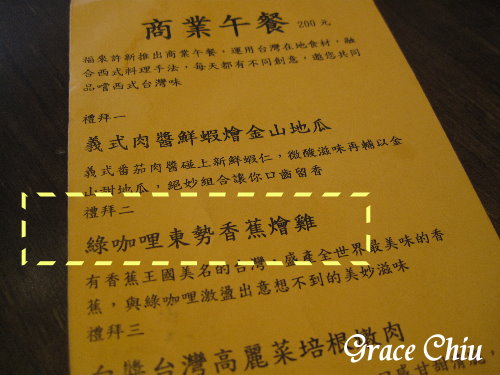 商業午餐 200 元
福來許新推出商業午餐，運用台灣在地食材，融
合西式料理手法，每天都有不同創意，邀您共同
品嚐西式台灣味
禮拜一
義式肉醬鮮蝦燴金山地瓜
義式番茄肉醬碰上新鮮蝦仁，微酸滋味再輔以金
山甜地瓜，絕妙組合讓你口齒留香
禮拜二
綠咖哩東勢香蕉燴雞
有香蕉王國美名的台灣，盛產全世界最美味的香
蕉，與綠咖哩激盪出意想不到的美妙滋味
禮拜三
白醬台灣高麗菜培根嫩肉
Grace Chiu